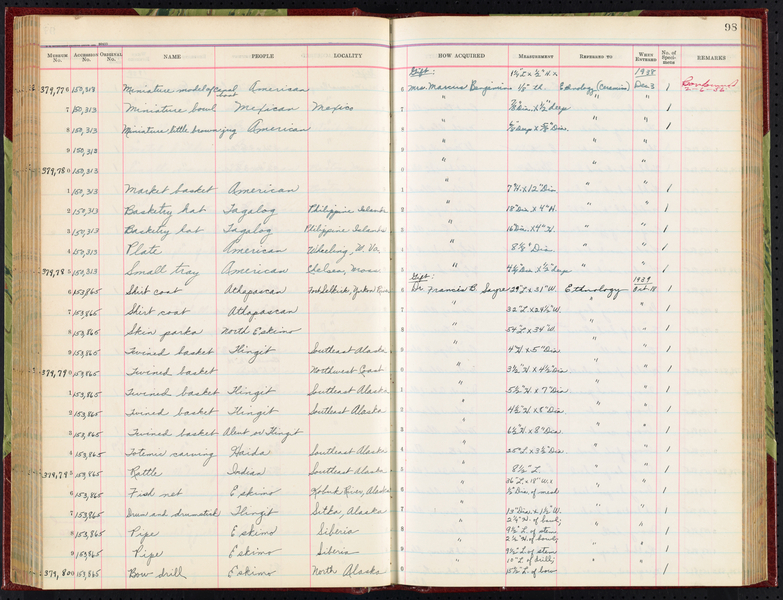 98
MUSEUM No. ACCESSION No. ORIGINAL No. NAME PEOPLE LOCALITY HOW ACQUIRED MEASUREMENT REFERRED TO WHEN ENTERED No. of Specimens REMARKS
Gift: 1938
379,776 150,313 Miniature model of bowl American 6 Mrs. Marcus Benjamin Ethnology (Ceramics) Dec 3 1
7 150,313 Miniature bowl Mexican Mexico 7 " " " 1
8 150,313 Miniature little brown jug American 8 " " " 1
9 150,313 9 " " "
379,780 150,313 0 " " "
1 150,313 Market basket American 1 " 7" H. x 12" Dia. " " 1
2 150,313 Basketry hat Tagalog Philippine Islands 2 " 18" Dia. x 4" H. " " 1
3 150,313 Basketry hat Tagalog Philippine Islands 3 " 16" Dia. x 4" H. " " 1
4 150,313 Plate American Wheeling, W. Va. 4 " 8 1/2" Dia. " " 1
379,785 150,313 Small tray American Chelsea, Mass. " " " 1
Gift: 1939
6 153,865 Skirt coat Athapascan Fort Selkirk, Yukon River Dr. Francis B. Sayre 29" L. x 31" W. Ethnology Oct. 18 1
7 153,865 Shirt coat Athapascan 7 " 32" L. x 24 1/2" W. " " 1
8 153,865 Skin parka North Eskimo 8 " 54" L. x 34" W. " " 1
9 153,865 Twined basket Tlingit Southeast Alaska 9 " 4" H. x 5" Dia. " " 1
379,790 153,865 Twined basket Northwest Coast 0 " 3 1/2" H. x 4 1/2" Dia. " " 1
1 153,865 Twined basket Tlingit Southeast Alaska 1 " 5 1/2" H. x 7" Dia. " " 1
2 153,865 Twined basket Tlingit Southeast Alaska 2 " 4 1/2" H. x 5" Dia. " " 1
3 153,865 Twined basket Aleut or Tlingit 3 " 6 1/2" H. x 8" Dia. " " 1
4 153,865 Totemic carving Haida Southeast Alaska 4 " 25" L. x 3 1/2" Dia. " " 1
379,795 153,865 Rattle Indian Southeast Alaska " 8 1/2" L. " " 1
6 153,865 Fish net Eskimo Kobuk River, Alaska 6 " 36" L. x 18" W. x " " 1
1/2" Dia. of mesh
7 153,865 Drum and drumstick Tlingit Sitka, Alaska 7 " 13" Dia. x 1 1/2" W. " " 1
8 153,865 Pipe Eskimo Siberia 8 " 2 1/4" H. of bowl; " " 1
9 1/2" L. of stem
9 153,865 Pipe Eskimo Siberia 9 " 2 1/4" H. of bowl; " " 1
9 1/2" L. of stem
379,800 153,865 Bow drill Eskimo North Alaska 0 " 10" L. of drill; " " 1
15 1/2" L. of bow